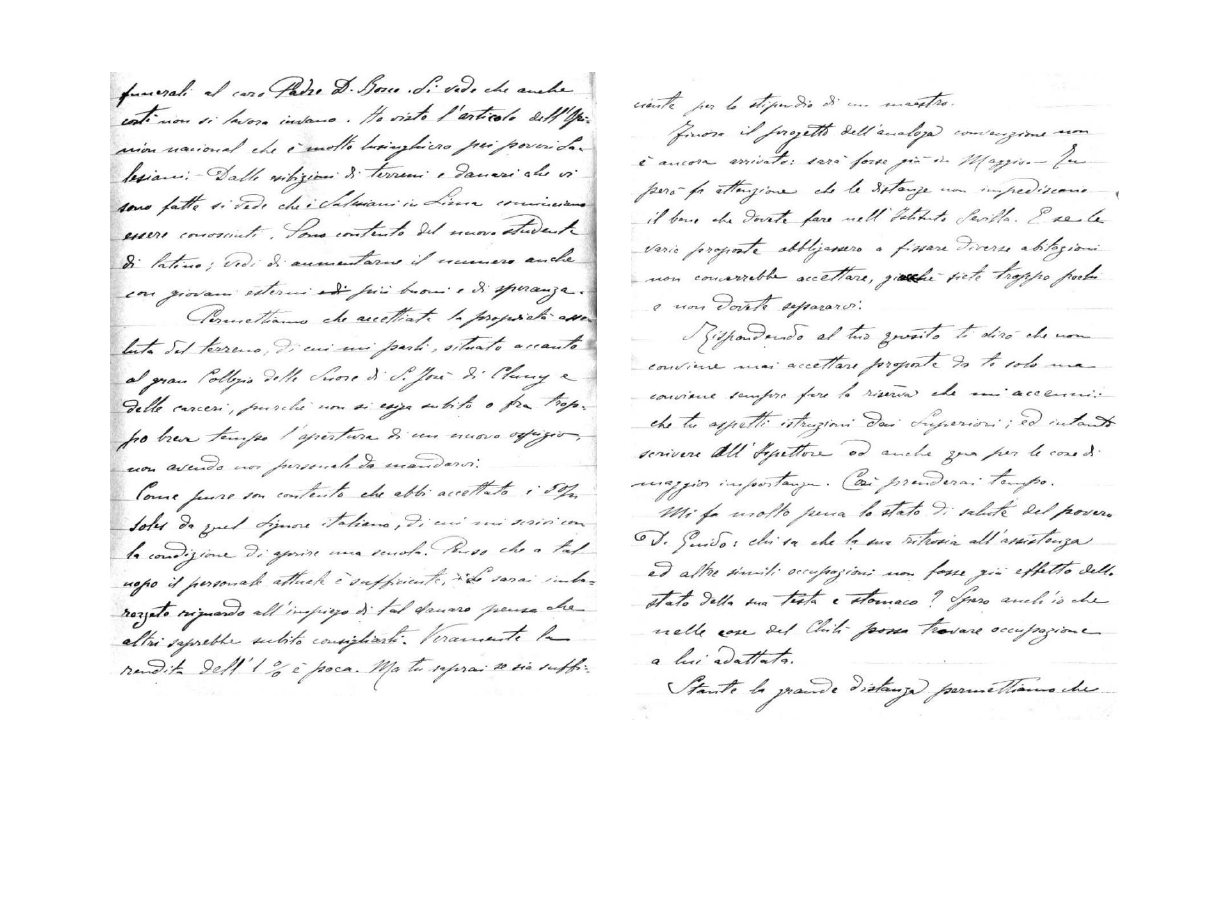 funerali al caro Padre D. Bosco. Si vede che anche
costì non si lavora invano. Ho visto l'articolo dell'Opi-
nion nacional che è molto lusinghiero pei poveri Sa-
lesiani. Dalle esibizioni di terreni e danari che vi
sono fatte si vede che i Salesiani in Lima cominciano
essere conosciuti. Sono contento del nuovo studente
di latino; vedi di aumentarne il numero anche
con giovani esterni più buoni e di speranza.
Permettiamo che accettiate la proprietà asso-
luta del terreno, di cui mi parli, situato accanto
al gran Collegio delle Suore di S. José di Cluny e
delle carceri, purchè non si esiga subito o fra trop-
po breve tempo l'apertura di un nuovo ospizio,
non avendo noi personale da mandarvi.
Come pure son contento che abbi accettato i
soles da quel Signore italiano, di cui mi scrivi con
la condizione di aprire una scuola. Penso che a tal
uopo il personale attuale è sufficiente. Se sarai imba-
razzato riguardo all'impiego di tal danaro pensa che
altri saprebbe subito consigliarti. Veramente la
rendita dell'1 % è poca. Ma tu saprai se sia suffi-
ciente per lo stipendio di un maestro.
Finora il progetto dell'analoga convenzione non
è ancora arrivato: sarà forse giù in Maggio. Tu
però fa attenzione che le distanze non impediscano
il bene che dovete fare nell'Istituto Sevilla. E se le
varie proposte obbligassero a fissare diverse abitazioni
non converrebbe accettare, giacchè siete troppo pochi
e non dovete separarvi.
Rispondendo al tuo quesito ti dirò che non
conviene mai accettare proposte da te solo ma
conviene sempre fare la riserva che mi accenni:
che tu aspetti istruzioni dai Superiori; ed intanto
scrivere all'Ispettore od anche qua per le cose di
maggior importanza. Così prenderai tempo.
Mi fa molto pena lo stato di salute del povero
D. Guido: chi sa che la sua ritrosia all'assistenza
ed altre simili occupazioni non fosse già effetto dello
stato della sua testa e stomaco? Spero anch'io che
nelle case del Chilì possa trovare occupazione
a lui adattata.
Stante la grande distanza permettiamo che